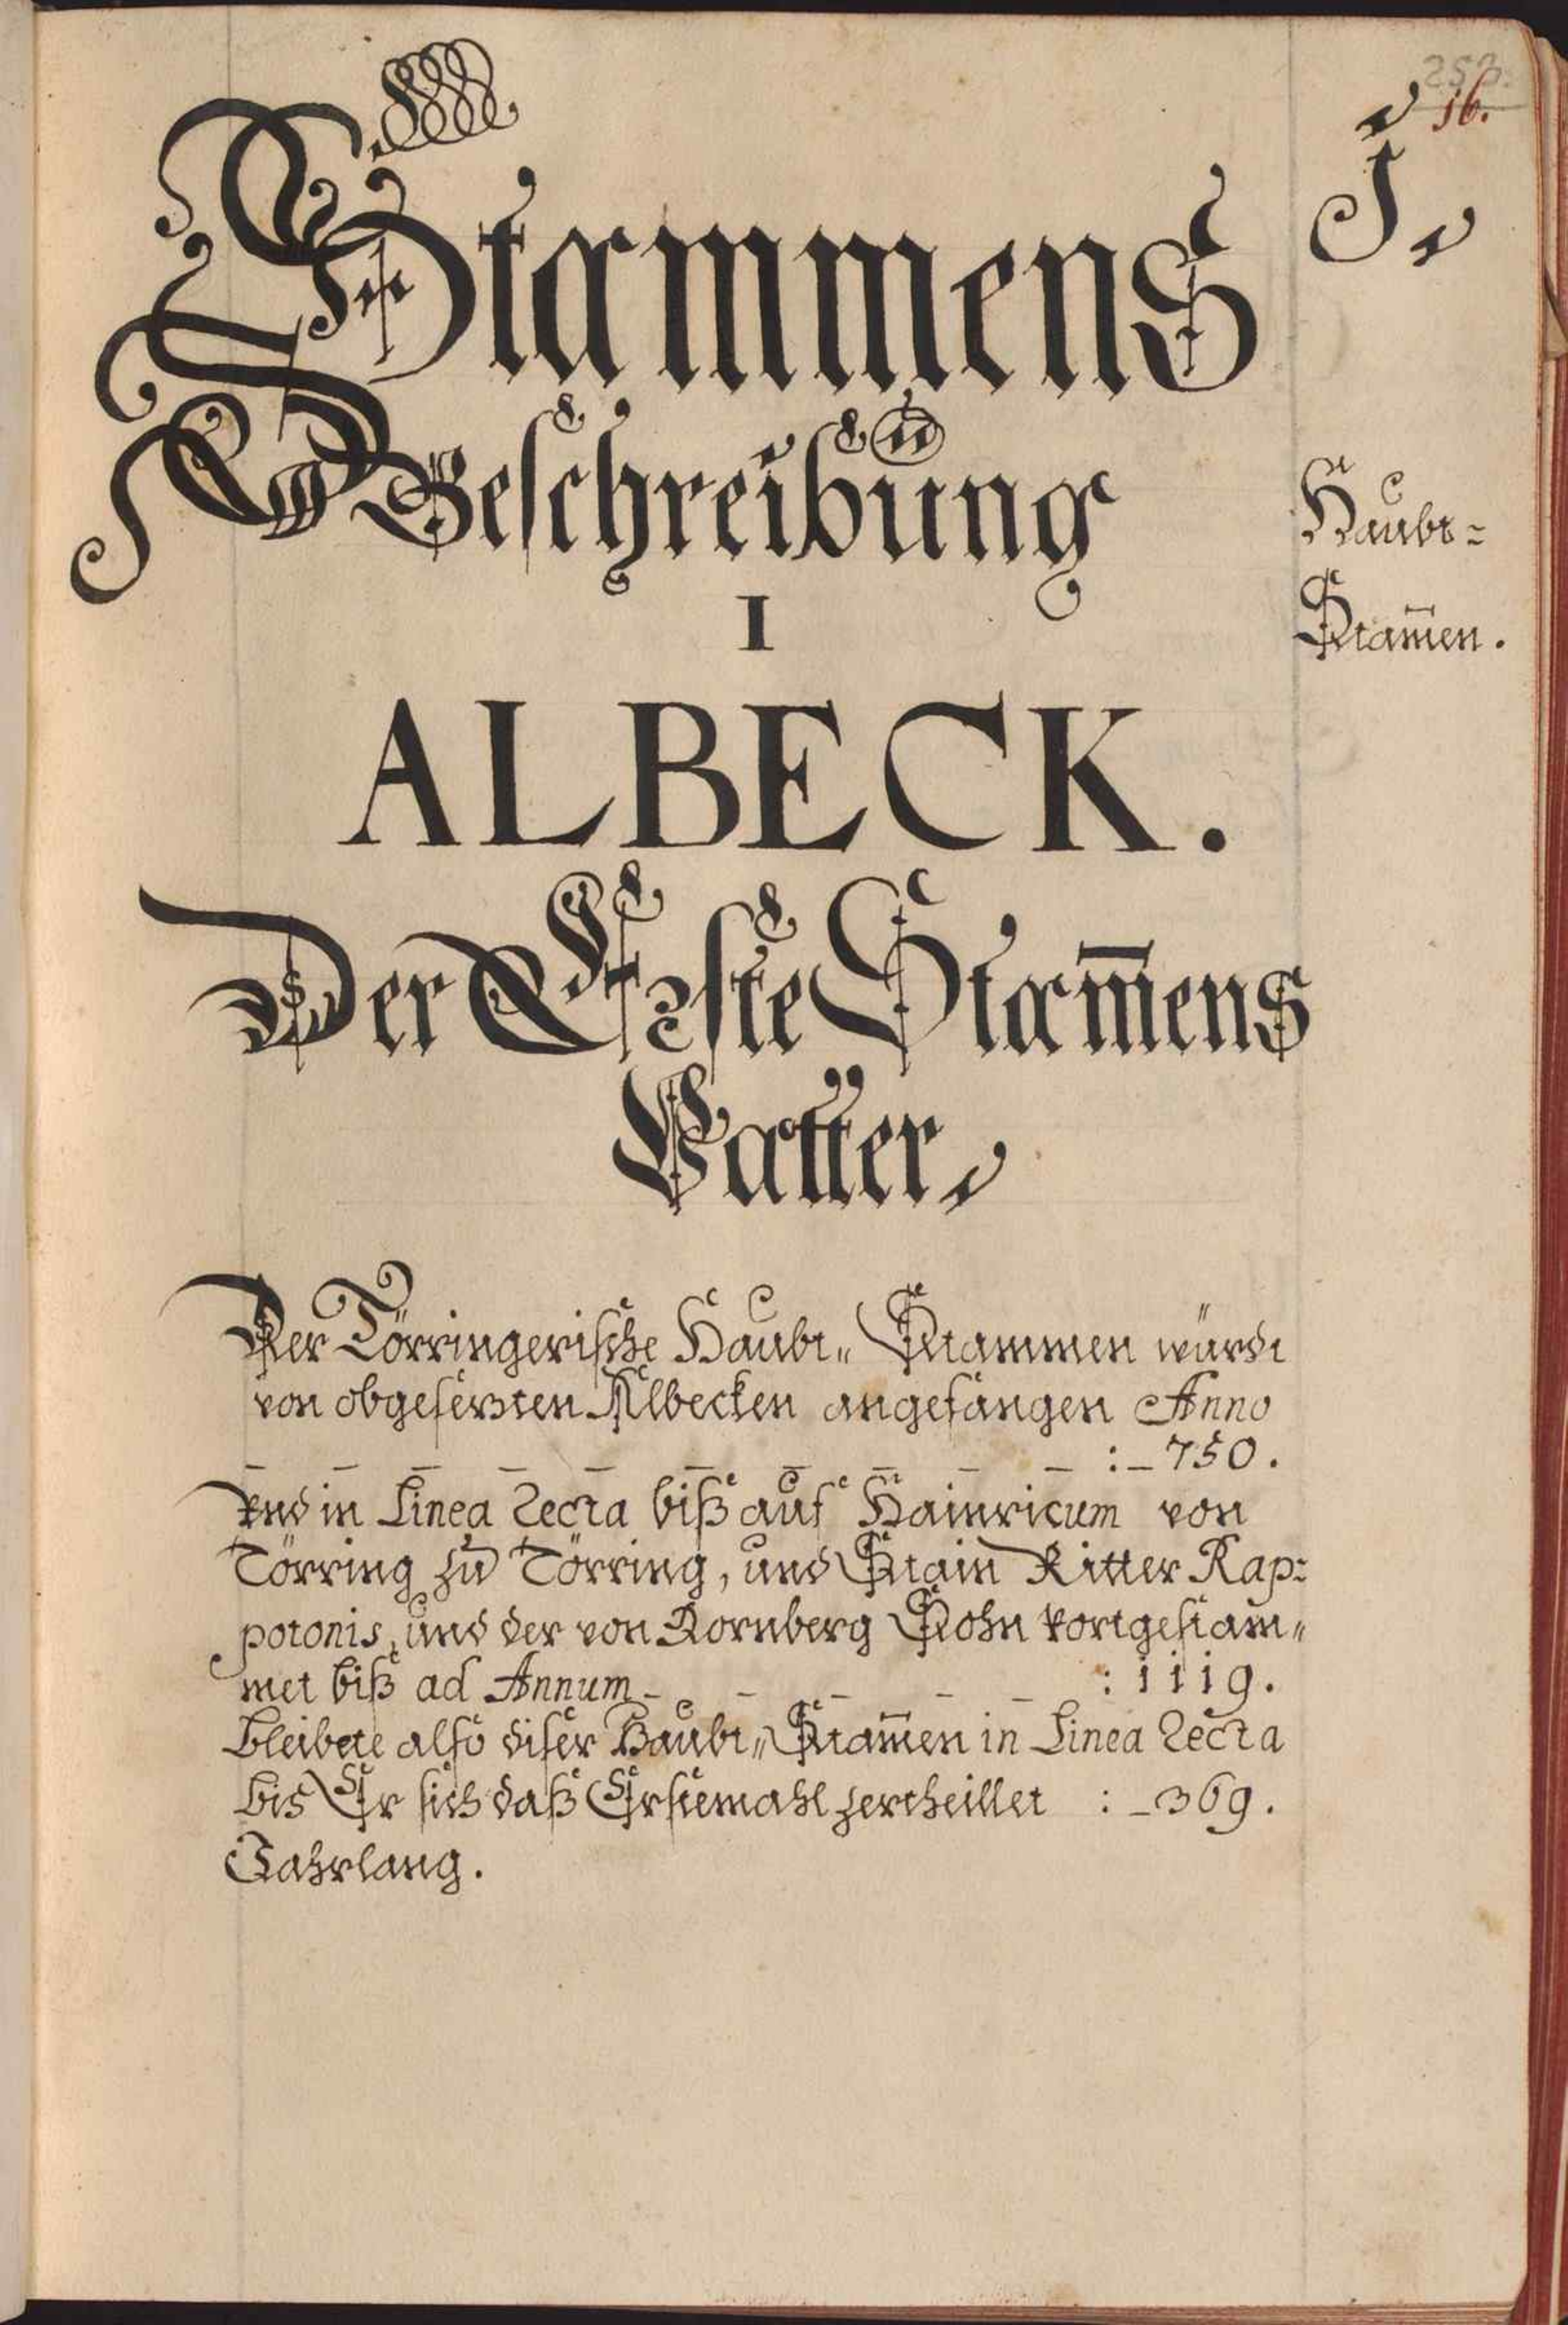 253.
16.
I
Stammens
Beschreibung
Haubt=
Stam̄en.
I
ALBECK.
Der Erste Stam̄ens
Vatter
Der Törringerische Haubt„ Stammen würdt
von obgesetzten Albecken angefangen Anno
_ _ _ _ _ _ _ _ _ _ :_750.
Vnd in Linea Recta biß auf Hainricum von
Törring zu Törring, und Stain Ritter Rap=
potonis, und der von Rornberg Sohn fortgestam„
met biß ad Annum _ _ _ _ _ : 1119.
Bleibete also diser Haubt„ Stam̄en in Linea Recta
bis Er sich daß Erstemahl zertheillet : _369.
Jahrlang.